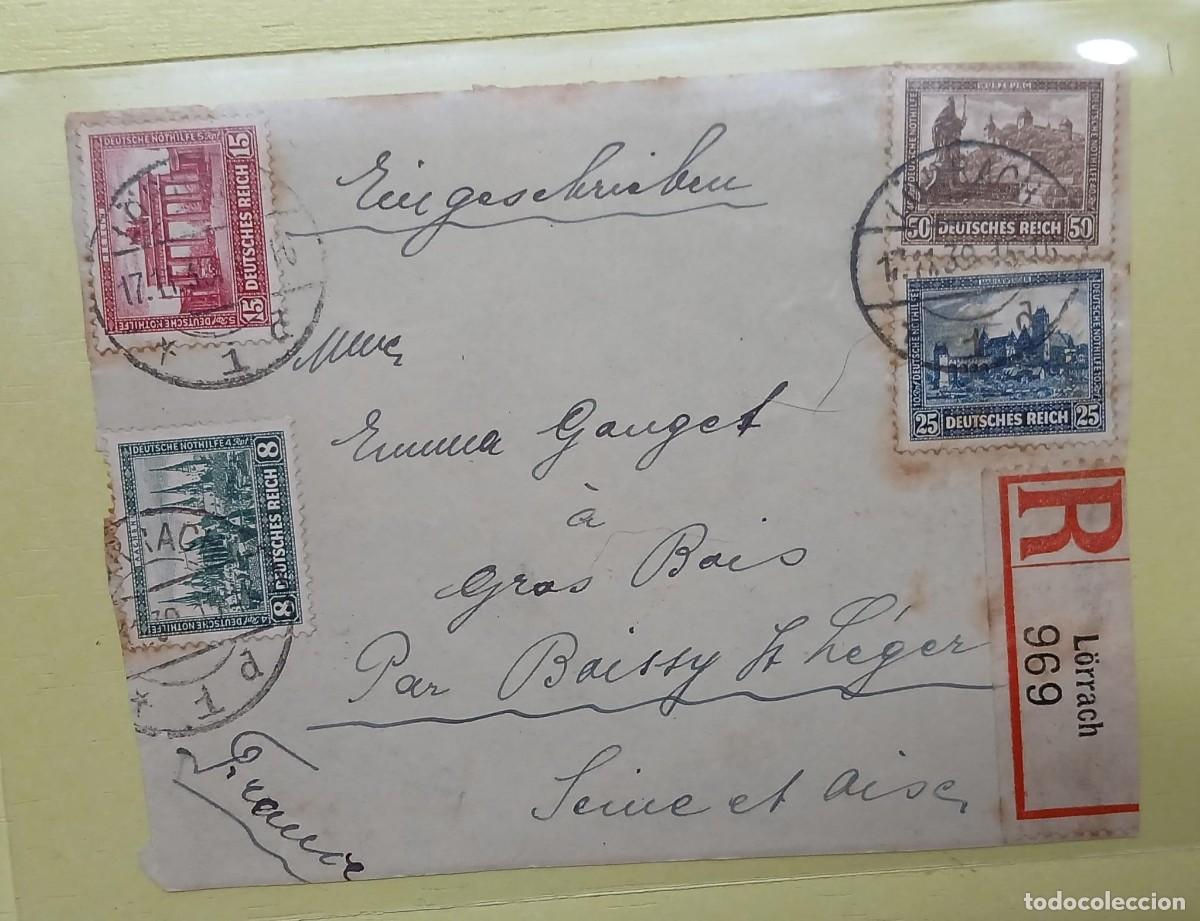 Eingeschrieben
Emma Gauget
à
Gros Bois
Par Boissy St Léger
Seine et Oise
France
DEUTSCHE NOTHILFE
15 DEUTSCHES REICH 15
DEUTSCHE NOTHILFE
DEUTSCHE NOTHILFE
8 DEUTSCHES REICH 8
DEUTSCHE NOTHILFE
WÜRZBURG
DEUTSCHE NOTHILFE
50 DEUTSCHES REICH 50
DEUTSCHE NOTHILFE
DEUTSCHE NOTHILFE
25 DEUTSCHES REICH 25
DEUTSCHE NOTHILFE
* 1 d
* 1 d
R
Lörrach
969
todocoleccion